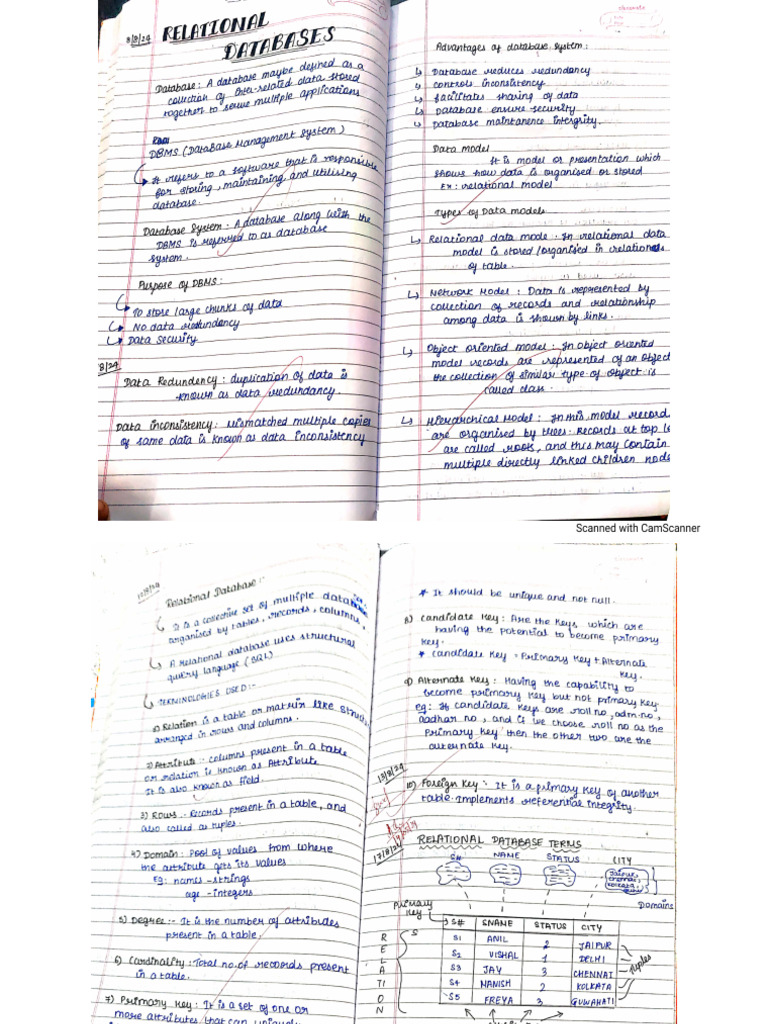 8/8/24 RELATIONAL
DATABASES
Database : A database maybe defined as a
collection of inter-related data stored
together to serve multiple applications
DBMS (Database Management System)
It refers to a software that is responsible
for storing, maintaining and utilising
database.
Database System : A database along with the
DBMS is referred to as database
system.
Purpose of DBMS :
To store large chunks of data
No data redundancy
Data Security
8/24
Data Redundancy : duplication of data is
known as data redundancy.
Data inconsistency : Mismatched multiple copies
of same data is known as data inconsistency
Advantages of database system :
Database reduces redundancy
controls inconsistency
facilitates sharing of data
Database ensure security
Database maintanence intergrity.
Data model
It is model or presentation which
shows how data is organised or stored
Ex : relational model
Types of Data models
Relational data mode : In relational data
model is stored / organised in relations
of table.
Network Model : Data is represented by
collection of records and relationship
among data is shown by links.
Object oriented model : In object oriented
model records are represented of an object
the collection of similar type of object is
called class.
Hierarchical Model : In this model record
are organised by trees. Records at top le
are called roots, and this may contain
multiple directly linked children nodes
Scanned with CamScanner
12/8/24 Relational Database :-
It is a collective set of multiple data
organised by tables, records, columns,
A relational database uses structural
query language (SQL)
TERMINOLOGIES USED :-
1) Relation is a table or matrix like struct
arranged in rows and columns.
2) Attribute : columns present in a table
or relation is known as Attribute
It is also known as field.
3) Rows :- Records present in a table, and
also called as tuples.
4) Domain : Pool of values from where
the attribute gets its values
Eg : names - strings
age - integers
5) Degree :- It is the number of attributes
present in a table.
6) Cardinality : Total no. of records present
in a table.
7) Primary Key : It is a set of one or
more attributes that can uniquely
* It should be unique and not null.
8) Candidate Key : Are the keys, which are
having the potential to become primary
key.
* Candidate Key = Primary Key + Alternate
Key.
9) Alternate Key : Having the capability to
become primary key but not primary key.
eg : If candidate keys are roll no, adm.no,
aadhar no, and is we choose roll no as the
'Primary Key' then the other two are the
alternate key.
13/8/24
10) Foreign Key : It is a primary key of another
table. Implements referential integrity.
17/8/24 RELATIONAL DATABASE TERMS
S# NAME STATUS CITY
Domains
Primary
Key
S# SNAME STATUS CITY
S1 ANIL 2 JAIPUR
S2 VISHAL 1 DELHI
S3 JAY 3 CHENNAI
S4 MANISH 2 KOLKATA
S5 FREYA 3 GUWAHATI
Tuples
S
RELATION